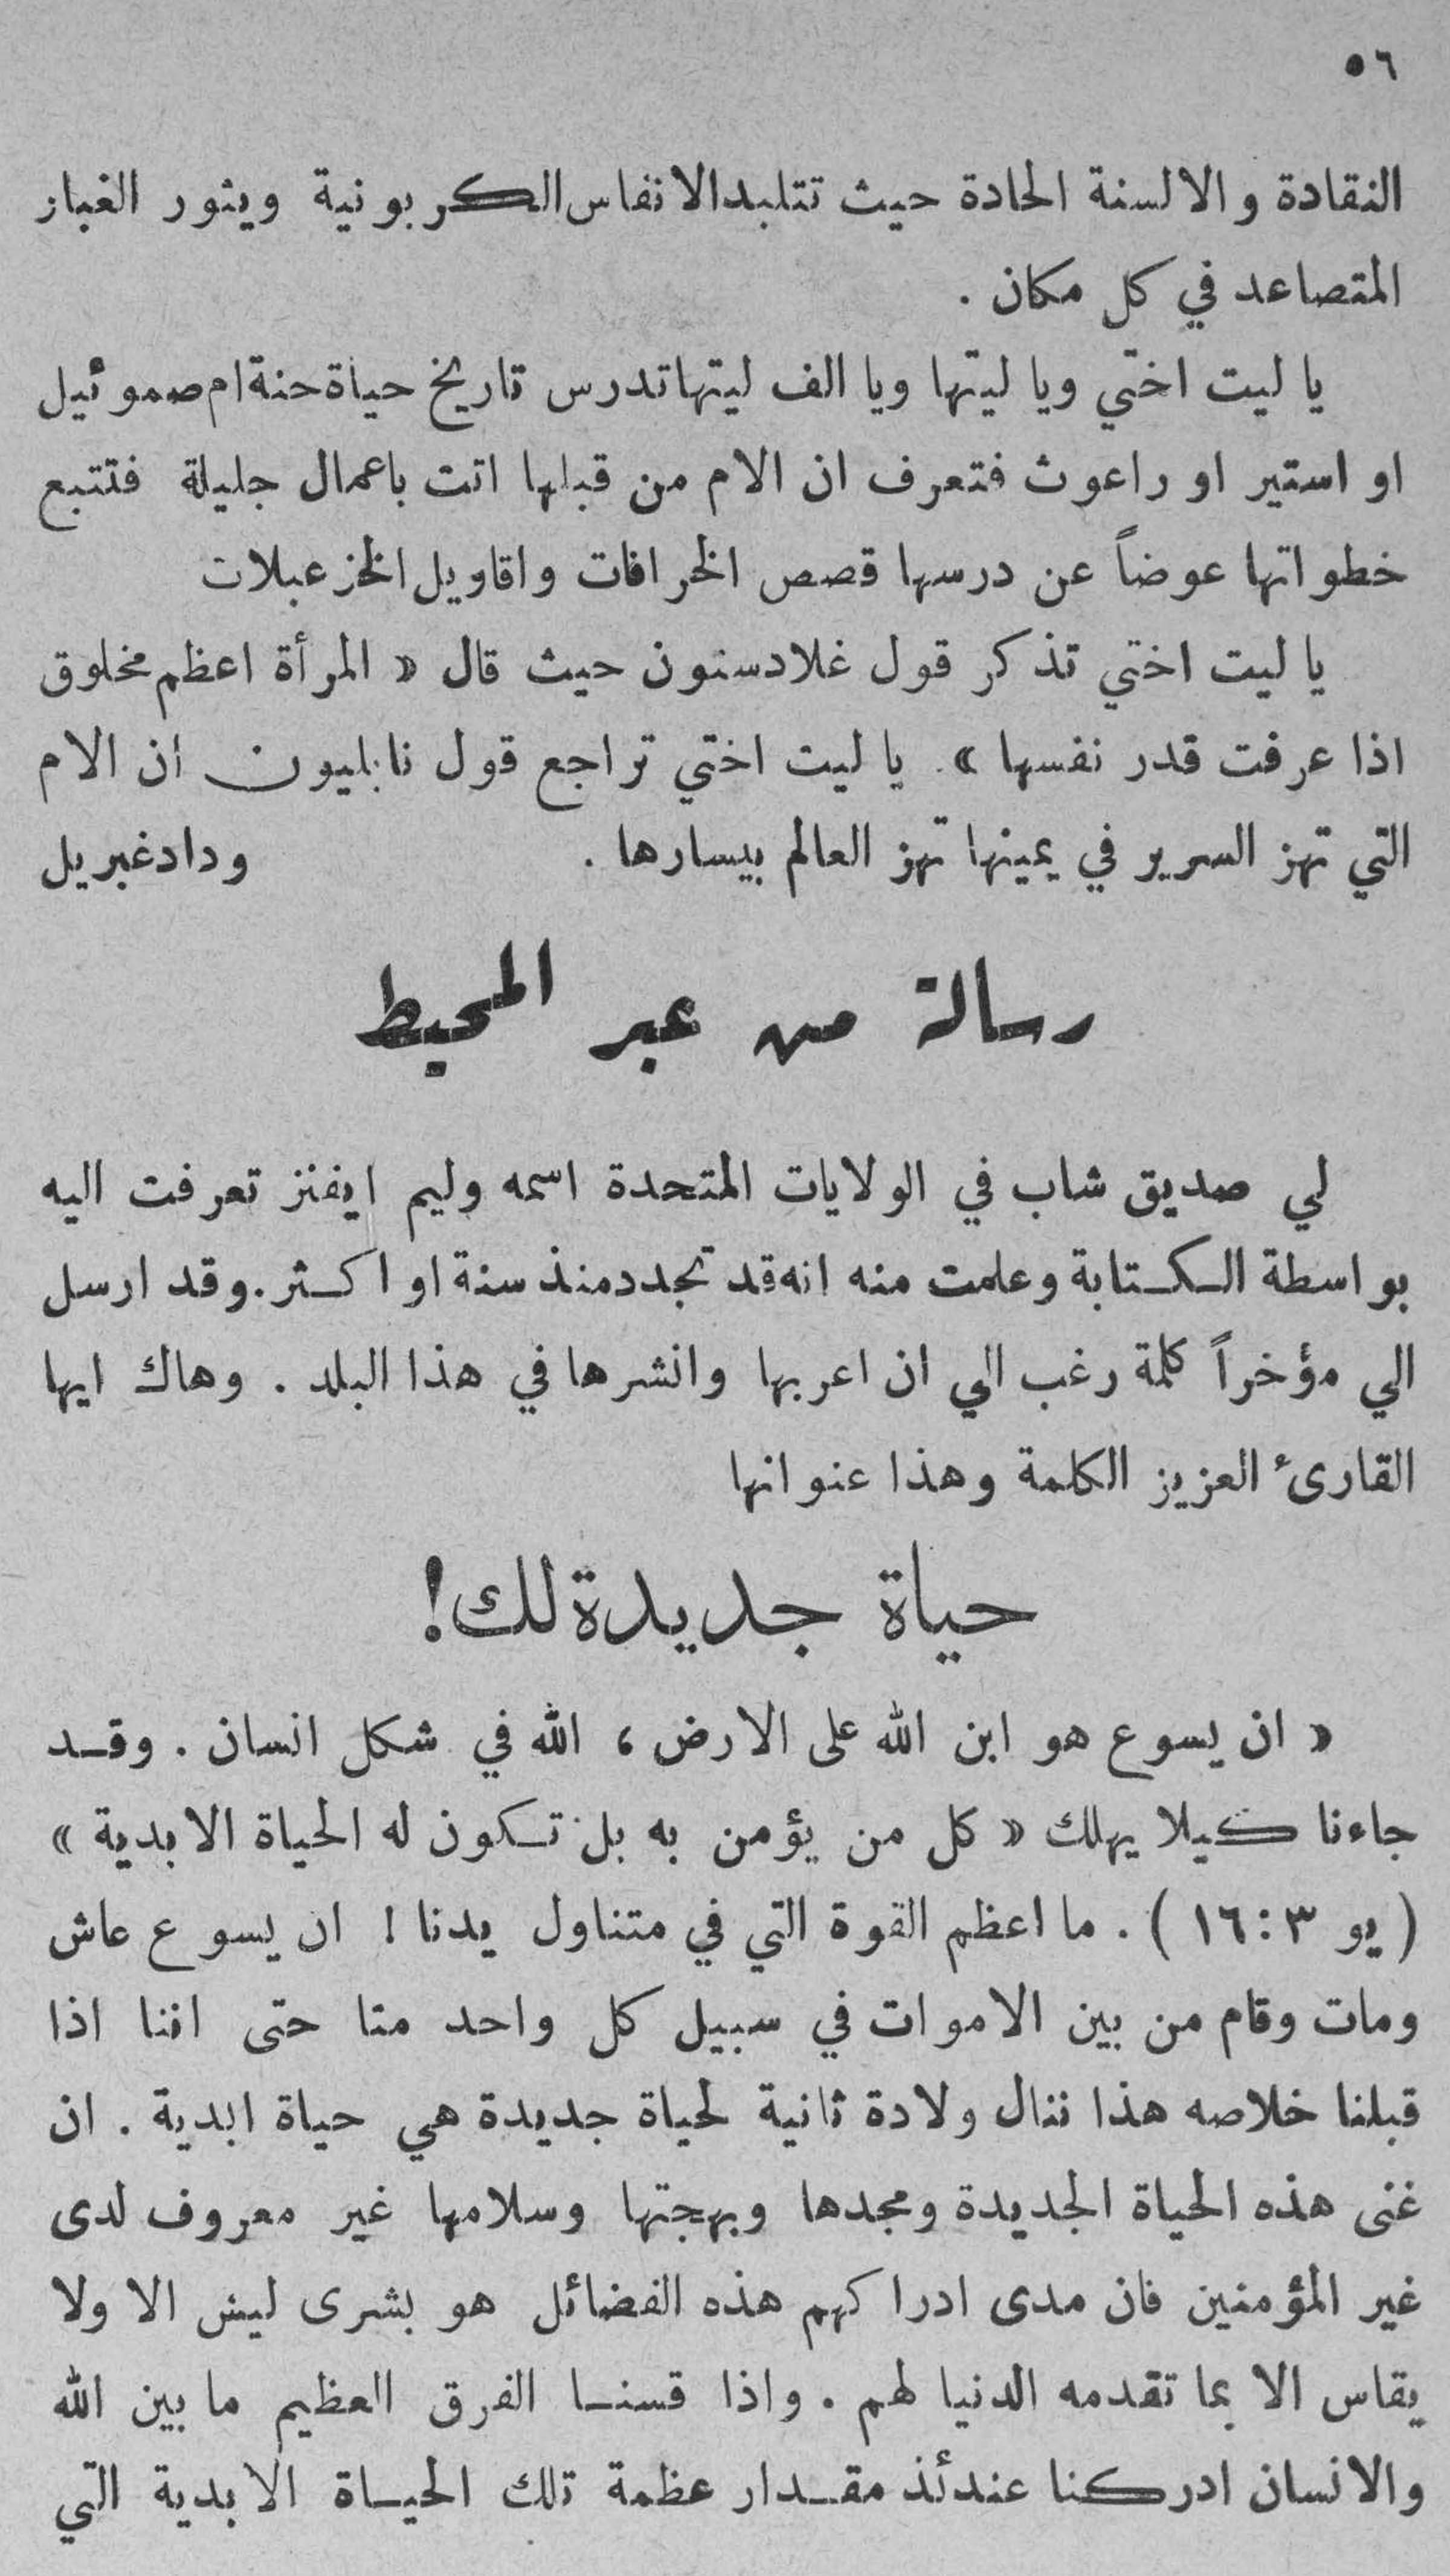 ٥٦
النقادة والالسنة الحادة حيث تتلبد الانفاس الكربونية ويثور الغبار
المتصاعد في كل مكان .
يا ليت اختي ويا ليتها ويا الف ليتها تدرس تاريخ حياة حنة ام صموئيل
او استير او راعوث فتعرف ان الام من قبلها اتت باعمال جليلة فتتبع
خطواتها عوضاً عن درسها قصص الخرافات واقاويل الخزعبلات
يا ليت اختي تذكر قول غلادستون حيث قال « المرأة اعظم مخلوق
اذا عرفت قدر نفسها » . يا ليت اختي تراجع قول نابليون ان الام
التي تهز السرير في يمينها تهز العالم بيسارها . وداد غبريل
رسالة من عبر المحيط
لي صديق شاب في الولايات المتحدة اسمه وليم ايفنز تعرفت اليه
بواسطة الكتابة وعلمت منه انه قد تجدد منذ سنة او اكثر . وقد ارسل
الي مؤخراً كلمة رغب الي ان اعربها وانشرها في هذا البلد . وهاك ايها
القارئ العزيز الكلمة وهذا عنوانها
حياة جديدة لك !
« ان يسوع هو ابن الله على الارض ، الله في شكل انسان . وقد
جاءنا كيلا يهلك « كل من يؤمن به بل تكون له الحياة الابدية »
( يو ٣ : ١٦ ) . ما اعظم القوة التي في متناول يدنا ! ان يسوع عاش
ومات وقام من بين الاموات في سبيل كل واحد منا حتى اننا اذا
قبلنا خلاصه هذا ننال ولادة ثانية لحياة جديدة هي حياة ابدية . ان
غنى هذه الحياة الجديدة ومجدها وبهجتها وسلامها غير معروف لدى
غير المؤمنين فان مدى ادراكهم هذه الفضائل هو بشرى ليس الا ولا
يقاس الا بما تقدمه الدنيا لهم . واذا قسنا الفرق العظيم ما بين الله
والانسان ادركنا عندئذ مقدار عظمة تلك الحياة الابدية التي